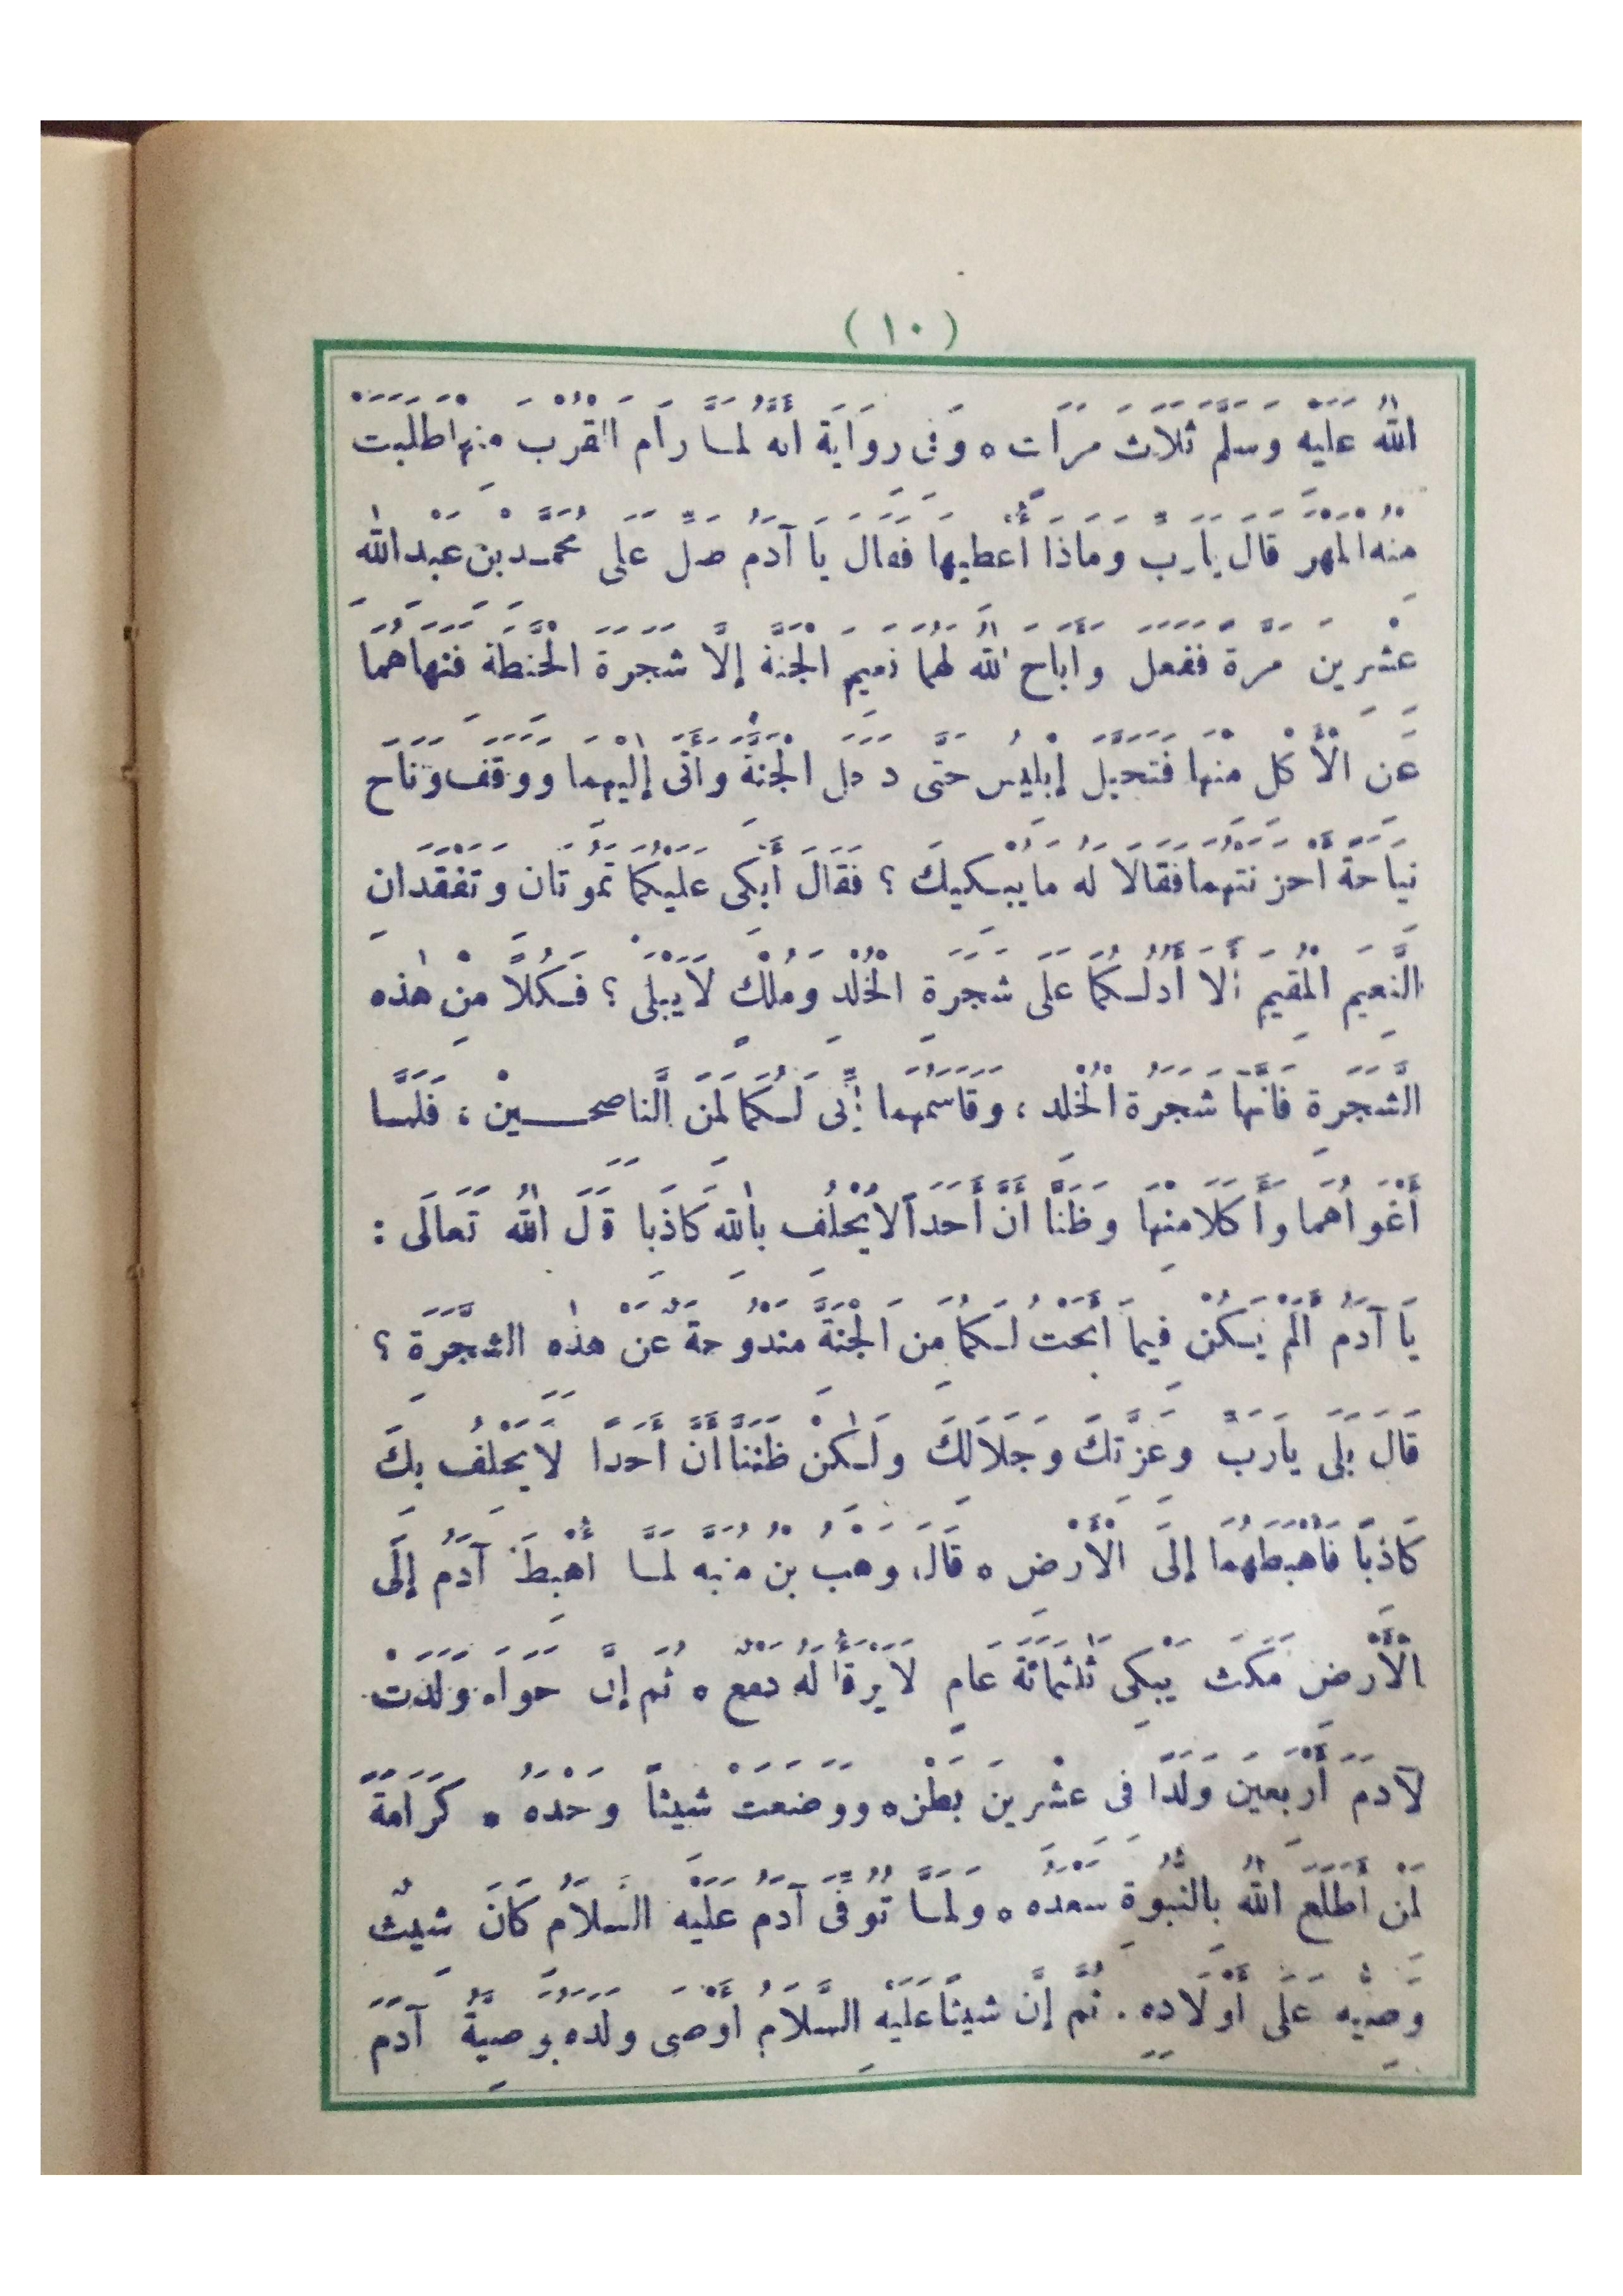 ( ١٠ )
اللهُ عَلَيْهِ وَسَلَّمَ ثَلَاثَ مَرَّاتٍ ٥ وَفِى رِوَايَةٍ أَنَّهُ لَمَّا رَامَ الْقُرْبَ مِنْهَا طَلَبَتْ
مِنْهُ الْمَهْرَ قَالَ يَارَبِّ وَمَاذَا أُعْطِيهَا فَقَالَ يَا آدَمُ صَلِّ عَلَى مُحَمَّدِ بْنِ عَبْدِ اللهِ
عِشْرِينَ مَرَّةً فَفَعَلَ وَأَبَاحَ اللهُ لَهُمَا نَعِيمَ الْجَنَّةِ إِلَّا شَجَرَةَ الْحِنْطَةِ فَنَهَاهُمَا
عَنِ الْأَكْلِ مِنْهَا فَتَحَيَّلَ إِبْلِيسُ حَتَّى دَخَلَ الْجَنَّةَ وَأَتَى إِلَيْهِمَا وَوَقَفَ وَنَاحَ
نِيَاحَةً أَحْزَنَتْهُمَا فَقَالَا لَهُ مَا يُبْكِيكَ ؟ فَقَالَ أَبْكِى عَلَيْكُمَا تَمُوتَانِ وَتَفْقَدَانِ
النَّعِيمَ الْمُقِيمَ أَلَا أَدُلُّكُمَا عَلَى شَجَرَةِ الْخُلْدِ وَمُلْكٍ لَا يَبْلَى ؟ فَكُلَا مِنْ هٰذِهِ
الشَّجَرَةِ فَإِنَّهَا شَجَرَةُ الْخُلْدِ ، وَقَاسَمَهُمَا إِنِّى لَكُمَا لَمِنَ النَّاصِحِينَ ، فَلَمَّا
أَغْوَاهُمَا وَأَكَلَا مِنْهَا وَظَنَّا أَنَّ أَحَدًا لَا يَحْلُفُ بِاللهِ كَاذِبًا قَالَ اللهُ تَعَالَى :
يَا آدَمُ أَلَمْ يَكُنْ فِيمَا أَبَحْتُ لَكُمَا مِنَ الْجَنَّةِ مَنْدُوحَةٌ عَنْ هٰذِهِ الشَّجَرَةِ ؟
قَالَ بَلَى يَارَبِّ وَعِزَّتِكَ وَجَلَالِكَ وَلٰكِنْ ظَنَنَّا أَنَّ أَحَدًا لَا يَحْلِفُ بِكَ
كَاذِبًا فَأَهْبَطَهُمَا إِلَى الْأَرْضِ ٥ قَالَ وَهْبُ بْنُ مُنَبِّهٍ لَمَّا أُهْبِطَ آدَمُ إِلَى
الْأَرْضِ مَكَثَ يَبْكِى ثَلٰثَمِائَةِ عَامٍ لَا يَرْقَأُ لَهُ دَمْعٌ ٥ ثُمَّ إِنَّ حَوَّاءَ وَلَدَتْ
لِآدَمَ أَرْبَعِينَ وَلَدًا فِى عِشْرِينَ بَطْنٍ ٥ وَوَضَعَتْ شِيثًا وَحْدَهُ ٥ كَرَامَةً
لِمَنْ أَطْلَعَ اللهُ بِالنُّبُوَّةِ سَعْدَهُ ٥ وَلَمَّا تُوُفِّىَ آدَمُ عَلَيْهِ السَّلَامُ كَانَ شِيثٌ
وَصِيَّهُ عَلَى أَوْلَادِهِ . ثُمَّ إِنَّ شِيثًا عَلَيْهِ السَّلَامُ أَوْصَى وَلَدَهُ بِوَصِيَّةِ آدَمَ